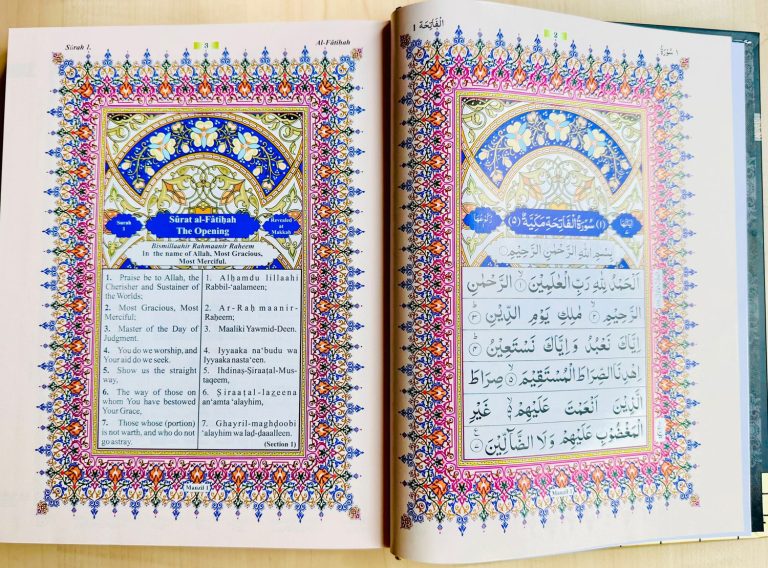 Sūrah 1.
3
Al-Fātiḥah
Sūrah
1
Sūrat al-Fātiḥah
The Opening
Revealed
at
Makkah
Bismillaahir Rahmaanir Raheem
In the name of Allah, Most Gracious,
Most Merciful.
1. Praise be to Allah, the
Cherisher and Sustainer of
the Worlds;
2. Most Gracious, Most
Merciful;
3. Master of the Day of
Judgment.
4. You do we worship, and
Your aid do we seek.
5. Show us the straight
way,
6. The way of those on
whom You have bestowed
Your Grace,
7. Those whose (portion)
is not warth, and who do not
go astray.
1. Alḥamdu lillaahi
Rabbil-‘aalameen;
2. Ar-Raḥmaanir-
Raḥeem;
3. Maaliki Yawmid-Deen.
4. Iyyaaka na‘budu wa
Iyyaaka nasta‘een.
5. Ihdinaṣ-Ṣiraaṭal-Mus-
taqeem,
6. Ṣiraaṭal-lazeena
an‘amta ‘alayhim,
7. Ghayril-maghḍoobi
‘alayhim wa laḍ-ḍaaalleen.
(Section 1)
Manzil 1
الْفَاتِحَة 1
2
سُوْرَةُ ١
(١) سُوْرَةُ الْفَاتِحَةِ مَكِّيَّةٌ (٥)
بِسْمِ اللهِ الرَّحْمٰنِ الرَّحِيْمِ
اَلْحَمْدُ لِلّٰهِ رَبِّ الْعٰلَمِيْنَ ۙ﴿١﴾ الرَّحْمٰنِ
الرَّحِيْمِ ۙ﴿٢﴾ مٰلِكِ يَوْمِ الدِّيْنِ ﴿٣﴾
اِيَّاكَ نَعْبُدُ وَاِيَّاكَ نَسْتَعِيْنُ ﴿٤﴾
اِهْدِنَا الصِّرَاطَ الْمُسْتَقِيْمَ ۙ﴿٥﴾ صِرَاطَ
الَّذِيْنَ اَنْعَمْتَ عَلَيْهِمْ ۙ۬﴿٦﴾ غَيْرِ
الْمَغْضُوْبِ عَلَيْهِمْ وَلَا الضَّآلِّيْنَ ﴿٧﴾
Manzil 1